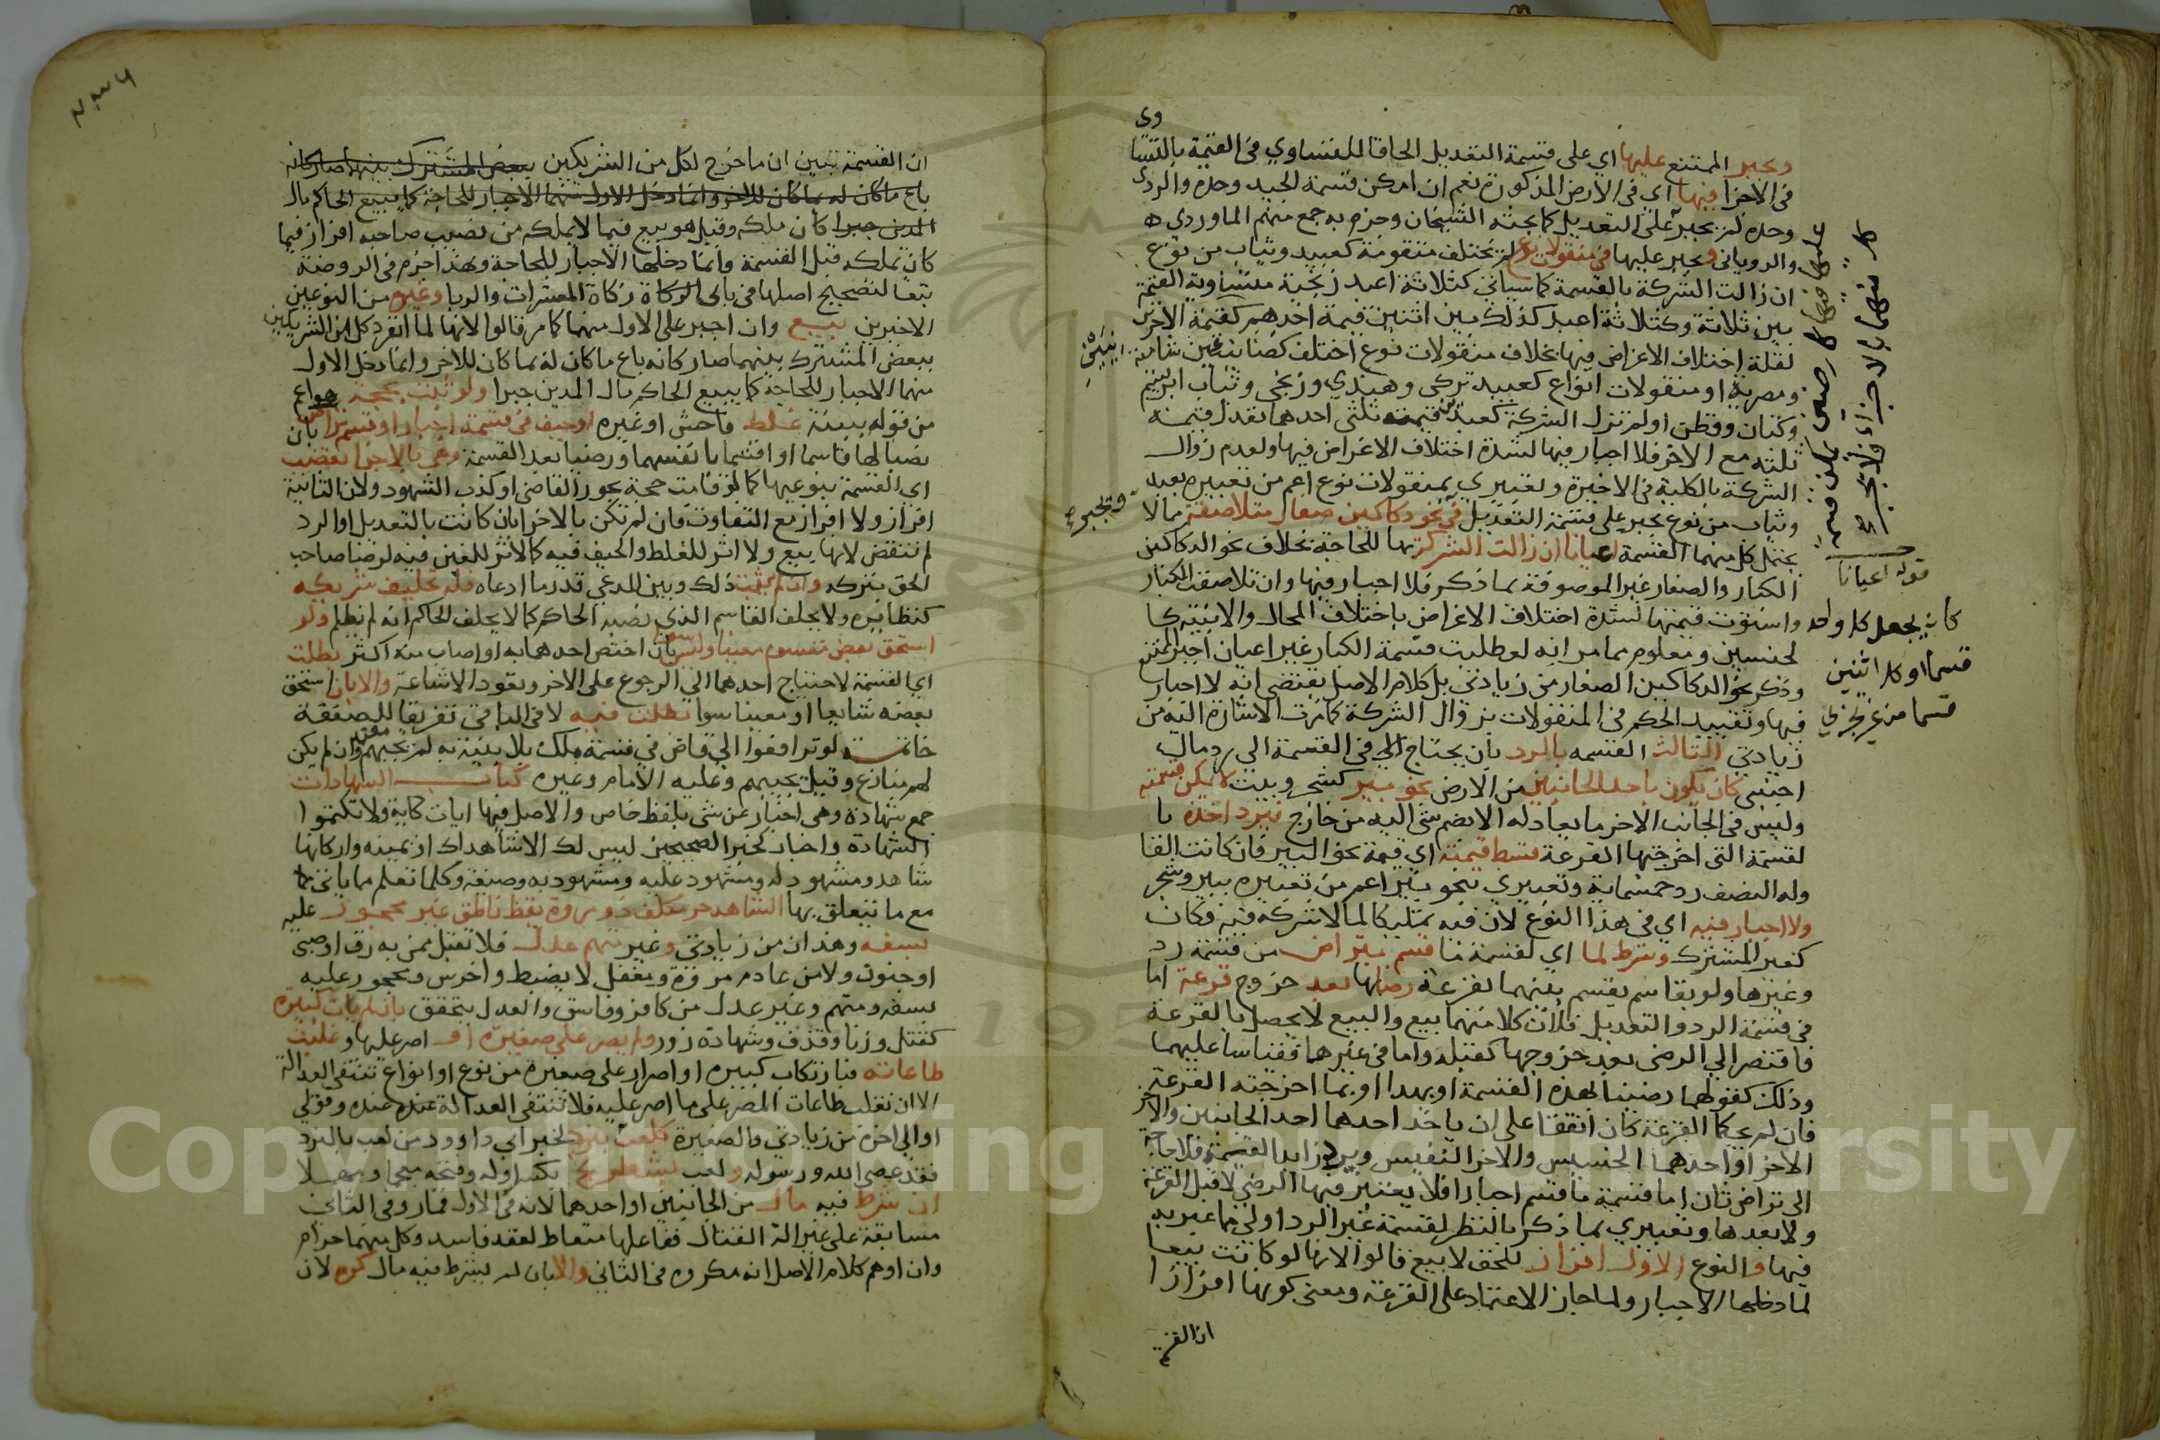 وى
ويجبر الممتنع عليها اي على قسمة التعديل الحاقا للتساوي في القيمة بالتسا
في الاجزا فيها اي في الارض المذكورة نعم ان امكن قسمة الجيد وحده والردى
وحده لم يجبر على التعديل كما بحثه الشيخان وجزم به جمع منهم الماوردي
والروياني ويجبر عليها في منقولات نوع لم يختلف متقومة كعبيد وثياب من نوع
ان زالت الشركة بالقسمة كما سياتي كثلاثة اعبد زنجية متساوية القيمة
بين ثلاثة وكثلاثة اعبد كذلك بين اثنين قيمة احدهم كقيمة الاخرين
لقلة اختلاف الاغراض فيها بخلاف منقولات نوع اختلف كضائنتين شامية
ومصرية او منقولات انواع كعبيد تركي وهندي وزنجي وثياب ابريسم
وكتان وقطن او لم تزل الشركة كعبدين قيمة ثلثي احدهما تعدل قيمة
ثلثه مع الاخر فلا اجبار فيها لشدة اختلاف الاغراض فيها ولعدم زوال
الشركة بالكلية في الاخيرة وتعبيري بمنقولات نوع اعم من تعبيره بعبيد
وثياب من نوع يجبر على قسمة التعديل في نحو دكاكين صغار متلاصقة مما لا
يحتمل كل منهما القسمة اعيانا ان زالت الشركة بها للحاجة بخلاف نحو الدكاكين
الكبار والصغار غير الموصوفة بما ذكر فلا اجبار فيها وان تلاصقت الكبار
واستوت قيمتها لشدة اختلاف الاغراض باختلاف المحال والابنية كا
لجنسين ومعلوم مما مر انه لو طلبت قسمة الكبار غير اعيان اجبر الممتنع
وذكر نحو الدكاكين الصغار من زيادتي بل كلام الاصل يقتضي انه لا اجبار
فيها وتقييد الحكم في المنقولات بزوال الشركة كما مرت الاشارة اليه من
زيادتي الثالث القسمه بالرد بان يحتاج في القسمة الى رد مال
اجنبي كان يكون باحد الجانبين من الارض نحو بير كشجر وبيت لا يمكن قسمته
وليس في الجانب الاخر ما يعادله الا بضم شي اليه من خارج فيرد اخذه با
لقسمة التي اخرجتها القرعة قسط قيمته اي قيمة نحو البير فان كانت الفا
وله النصف رد خمسماية وتعبيري بنحو بير اعم من تعبيره ببير وشجر
ولا اجبار فيه اي في هذا النوع لان فيه تمليكا لما لا شركة فيه فكان
كغير المشترك وشرط لما اي لقسمة ما قسم بتراض من قسمة رد
وغيرها ولو بقاسم يقسم بينهما بقرعة رضا بها بعد خروج قرعة اما
في قسمة الرد والتعديل فلان كلا منهما بيع والبيع لا يحصل بالقرعة
فافتقر الى الرضى بعد خروجها كقبله واما في غيرهما فقياسا عليهما
وذلك كقولهما رضينا بهذه القسمة او بهذا او بما اخرجته القرعة
فان لم يحكما القرعة كان اتفقا على ان ياخذ احدهما احد الجانبين والاخر
الاخر او احدهما الخسيس والاخر النفيس ويرد زايد القيمة فلا حاجة
الى تراض ثان اما قسمة ما قسم اجبارا فلا يعتبر فيها الرضى لا قبل القرعة
ولا بعدها وتعبيري بما ذكر بالنظر لقسمة غير الرد اولى مما عبر به
فيها والنوع الاول افراز للحق لا بيع قالوا لانها لو كانت بيعا
لما دخلها الاجبار ولما جاز الاعتماد على القرعة ومعنى كونها افرازا
ان القسمة
قوله اعيانا
كان يجعل كل واحد
قسما او كل اثنين
قسما من غير تجزي
ان القسمة تبين ان ما خرج لكل من الشريكين ببعض المشترك بينهما صار كانه
باع ما كان له بما كان للاخر وانما دخل الاول منهما الاجبار للحاجة كما يبيع الحاكم مال
المدين جبرا كان ملكه وقيل هو بيع فيما لا يملكه من نصيب صاحبه افراز فيما
كان يملكه قبل القسمة وانما دخلها الاجبار للحاجة وبهذا جزم في الروضة
تبعا لتصحيح اصلها في بابي الزكاة زكاة المعشرات والربا وغيره من النوعين
الاخيرين بيع وان اجبر على الاول منهما كما مر قالوا لانها لما انفرد كل من الشريكين
ببعض المشترك بينهما صار كانه باع ما كان له بما كان للاخر وانما دخل الاول
منهما الاجبار للحاجة كما يبيع الحاكم مال المدين جبرا ولو ثبت بحجة هو اعم
من قوله ببينة غلط فاحش او غيره او حيف في قسمة اجبار او قسم تراض بان
نصبا لها قاسما او اقتسما بانفسهما ورضيا بعد القسمة وهي بالاجزا نقضت
اي القسمة بنوعيها كما لو قامت حجة بجور القاضي او كذب الشهود ولان الثانية
افراز ولا افراز مع التفاوت فان لم تكن بالاجزا بان كانت بالتعديل او الرد
لم تنقض لانها بيع ولا اثر للغلط والحيف فيه كما لا اثر للغبن فيه لرضا صاحب
الحق بتركه وان لم يثبت ذلك وبين المدعي قدر ما ادعاه فله تحليف شريكه
كنظايره ولا يحلف القاسم الذي نصبه الحاكم كما لا يحلف الحاكم انه لم يظلم ولو
استحق بعض مقسوم معينا وليس سوا بان اختص احدهما به او اصاب منه اكثر بطلت
اي القسمة لاحتياج احدهما الى الرجوع على الاخر وتعود الاشاعة والا بان استحق
بعضه شايعا او معينا سوا بطلت فيه لا في الباقي تفريقا للصفقة
خاتمة لو ترافعوا الى قاض في قسمة ملك بلا بينة به لم يجبهم وان لم يكن
لهم منازع وقيل يجيبهم وعليه الامام وغيره كتاب الشهادات
جمع شهادة وهي اخبار عن شي بلفظ خاص والاصل فيها ايات كاية ولا تكتموا
الشهادة واخبار كخبر الصحيحين ليس لك الا شاهداك او يمينه واركانها
شاهد ومشهود له ومشهود عليه ومشهود به وصيغة وكلها تعلم مما ياتي
مع ما يتعلق بها الشاهد حر مكلف ذو مروة يقظ ناطق غير محجور عليه
بسفه وهذان من زيادتي وغير متهم عدل فلا تقبل ممن به رق او صبى
او جنون ولا من عادم مروة ومغفل لا يضبط واخرس ومحجور عليه
بسفه ومتهم وغير عدل من كافر وفاسق والعدل يتحقق بان لم يات كبيرة
كقتل وزنا وقذف وشهادة زور ولم يصر على صغيرة او اصر عليها وغلبت
طاعاته فبارتكاب كبيرة او اصرار على صغيرة من نوع او انواع تنتفي العدالة
الا ان تغلب طاعات المصر على ما اصر عليه فلا تنتفي العدالة عنه وقولي
او الى اخره من زيادتي والصغيرة كلعب بنرد لخبر ابي داوود من لعب بالنرد
فقد عصى الله ورسوله ولعب بشطرنج بكسر اوله وفتحه معجما ومهملا
ان شرط فيه مال من الجانبين او احدهما لانه في الاول قمار وفي الثاني
مسابقة على غير الة القتال ففاعلها متعاط لعقد فاسد وكل منهما حرام
وان اوهم كلام الاصل انه مكروه في الثاني والا بان لم يشرط فيه مال كره لان
Copyright © King Saud University